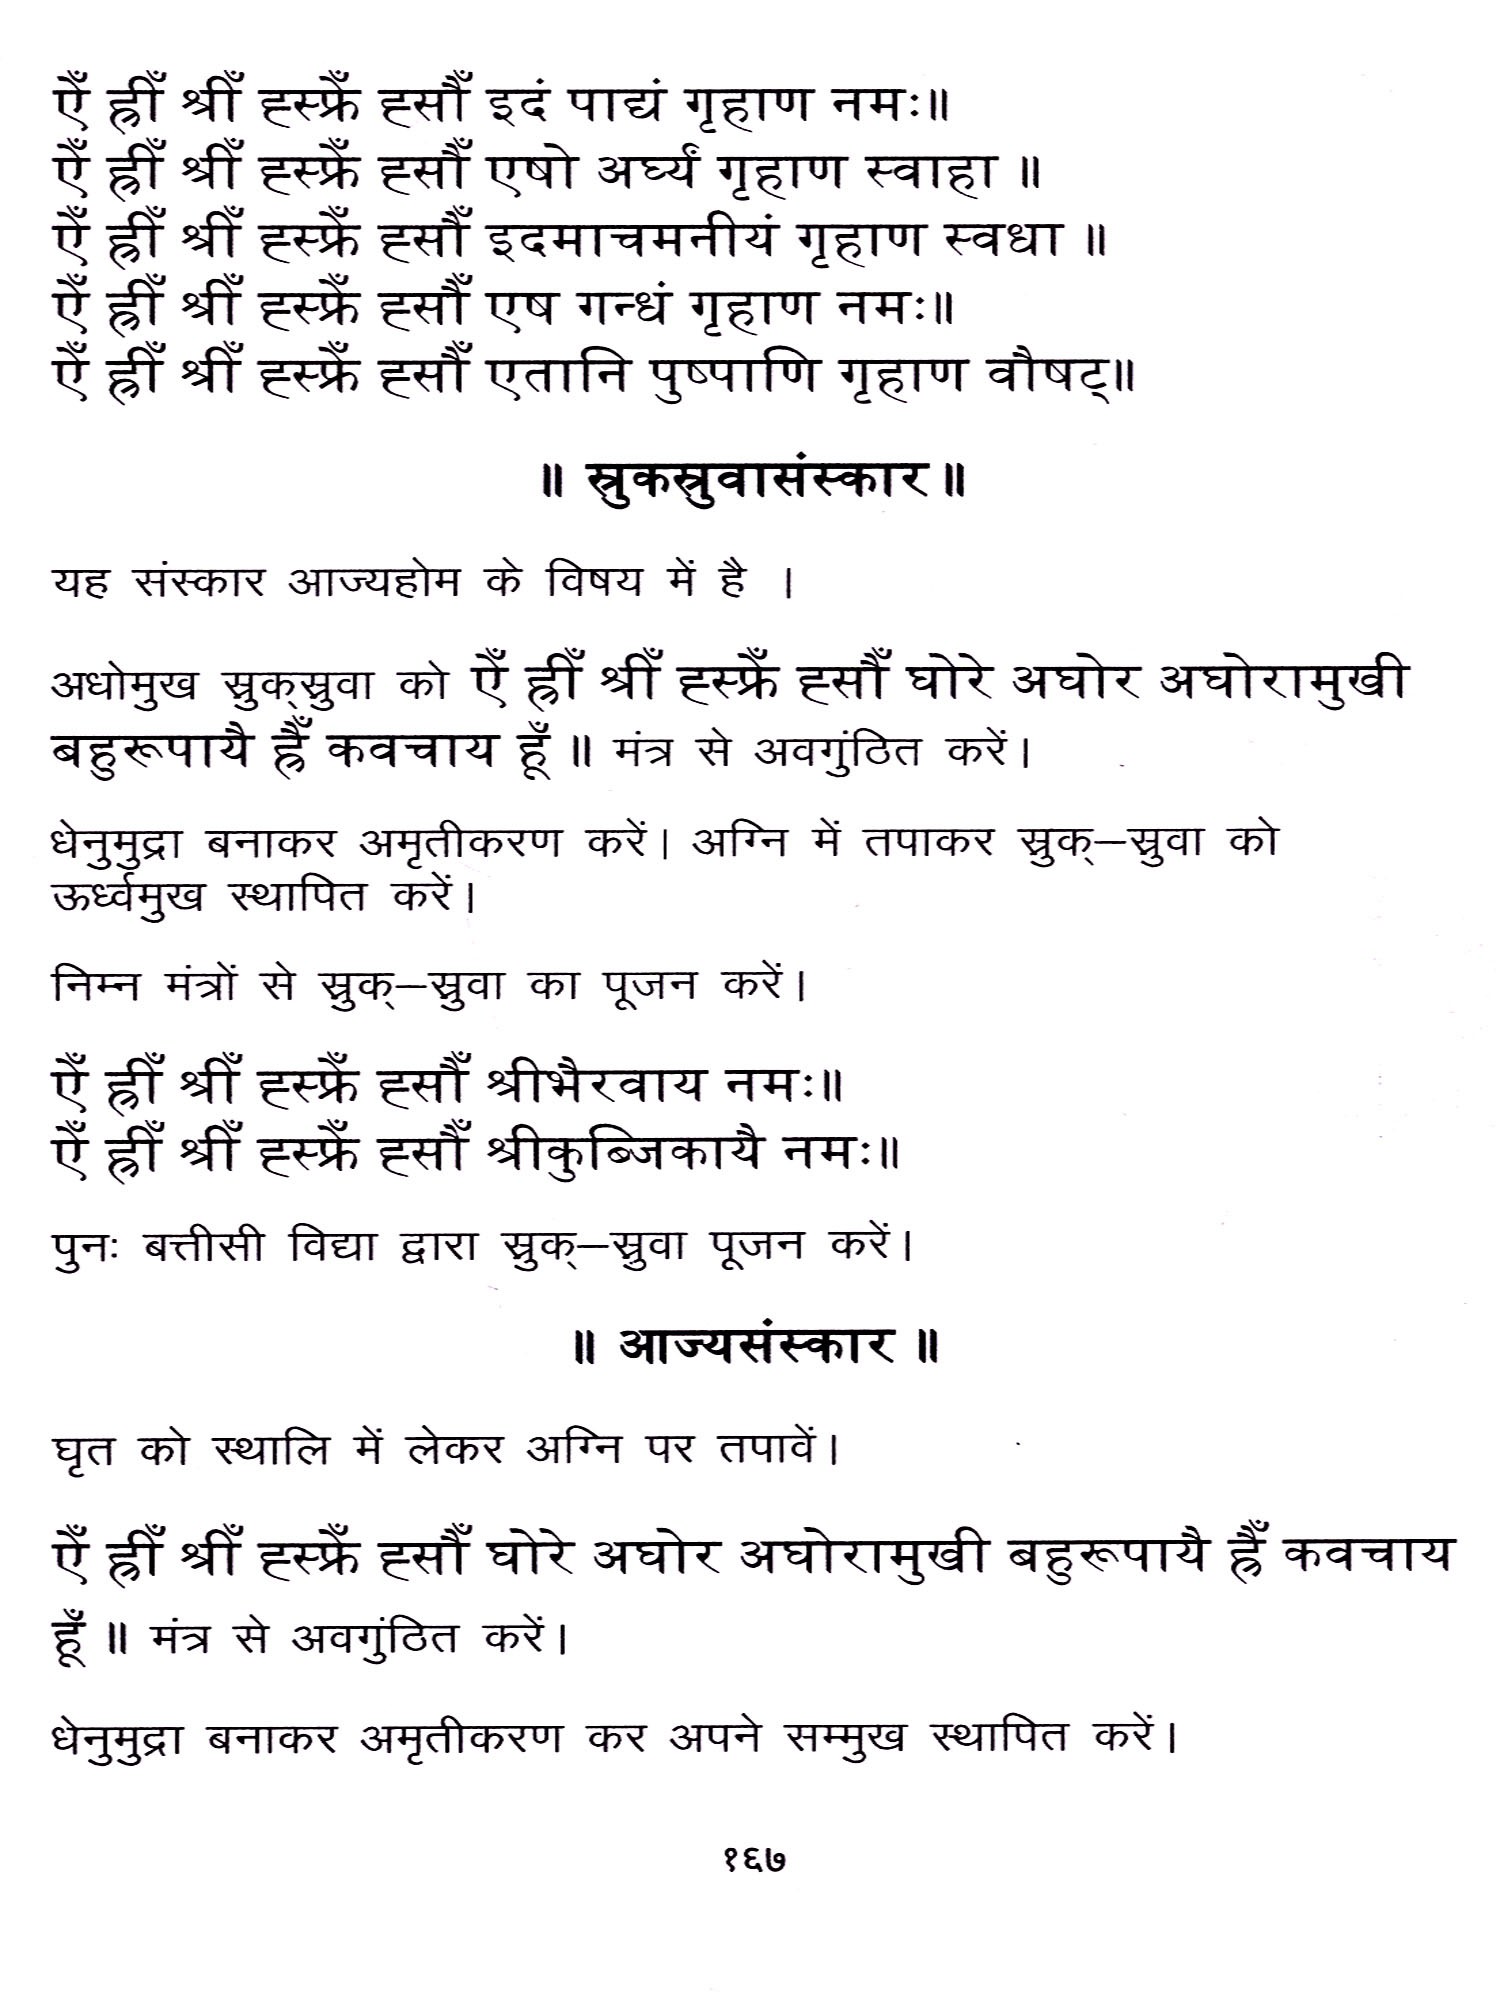 ऐँ ह्रीँ श्रीँ ह्स्फ्रेँ ह्सौँ इदं पाद्यं गृहाण नमः॥
ऐँ ह्रीँ श्रीँ ह्स्फ्रेँ ह्सौँ एषो अर्घ्यं गृहाण स्वाहा ॥
ऐँ ह्रीँ श्रीँ ह्स्फ्रेँ ह्सौँ इदमाचमनीयं गृहाण स्वधा ॥
ऐँ ह्रीँ श्रीँ ह्स्फ्रेँ ह्सौँ एष गन्धं गृहाण नमः॥
ऐँ ह्रीँ श्रीँ ह्स्फ्रेँ ह्सौँ एतानि पुष्पाणि गृहाण वौषट्॥
॥ स्रुकस्रुवासंस्कार॥
यह संस्कार आज्यहोम के विषय में है ।
अधोमुख स्रुक्स्रुवा को ऐँ ह्रीँ श्रीँ ह्स्फ्रेँ ह्सौँ घोरे अघोर अघोरामुखी
बहुरूपायै ह्रैँ कवचाय हूँ ॥ मंत्र से अवगुंठित करें।
धेनुमुद्रा बनाकर अमृतीकरण करें। अग्नि में तपाकर स्रुक्–स्रुवा को
ऊर्ध्वमुख स्थापित करें।
निम्न मंत्रों से स्रुक्–स्रुवा का पूजन करें।
ऐँ ह्रीँ श्रीँ ह्स्फ्रेँ ह्सौँ श्रीभैरवाय नमः॥
ऐँ ह्रीँ श्रीँ ह्स्फ्रेँ ह्सौँ श्रीकुब्जिकायै नमः॥
पुनः बत्तीसी विद्या द्वारा स्रुक्–स्रुवा पूजन करें।
॥ आज्यसंस्कार ॥
घृत को स्थालि में लेकर अग्नि पर तपावें।
ऐँ ह्रीँ श्रीँ ह्स्फ्रेँ ह्सौँ घोरे अघोर अघोरामुखी बहुरूपायै ह्रैँ कवचाय
हूँ ॥ मंत्र से अवगुंठित करें।
धेनुमुद्रा बनाकर अमृतीकरण कर अपने सम्मुख स्थापित करें।
१६७